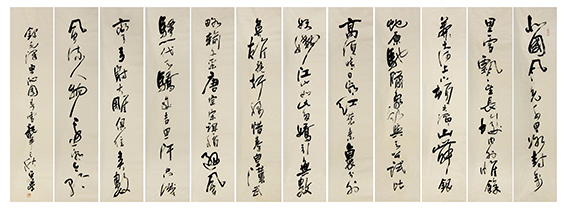 北國風光千里冰封萬
里雪飄望長城内外惟餘
莽莽大河上下頓失滔滔山舞銀
蛇原馳蠟象欲與天公試比
高須晴日看紅裝素裹分外
妖嬈江山如此多嬌引無數
英雄競折腰惜秦皇漢武
略輸文采唐宗宋祖稍遜風
騷一代天驕成吉思汗只識
彎弓射大雕俱往矣數
風流人物還看今朝
錄毛澤東沁園春雪